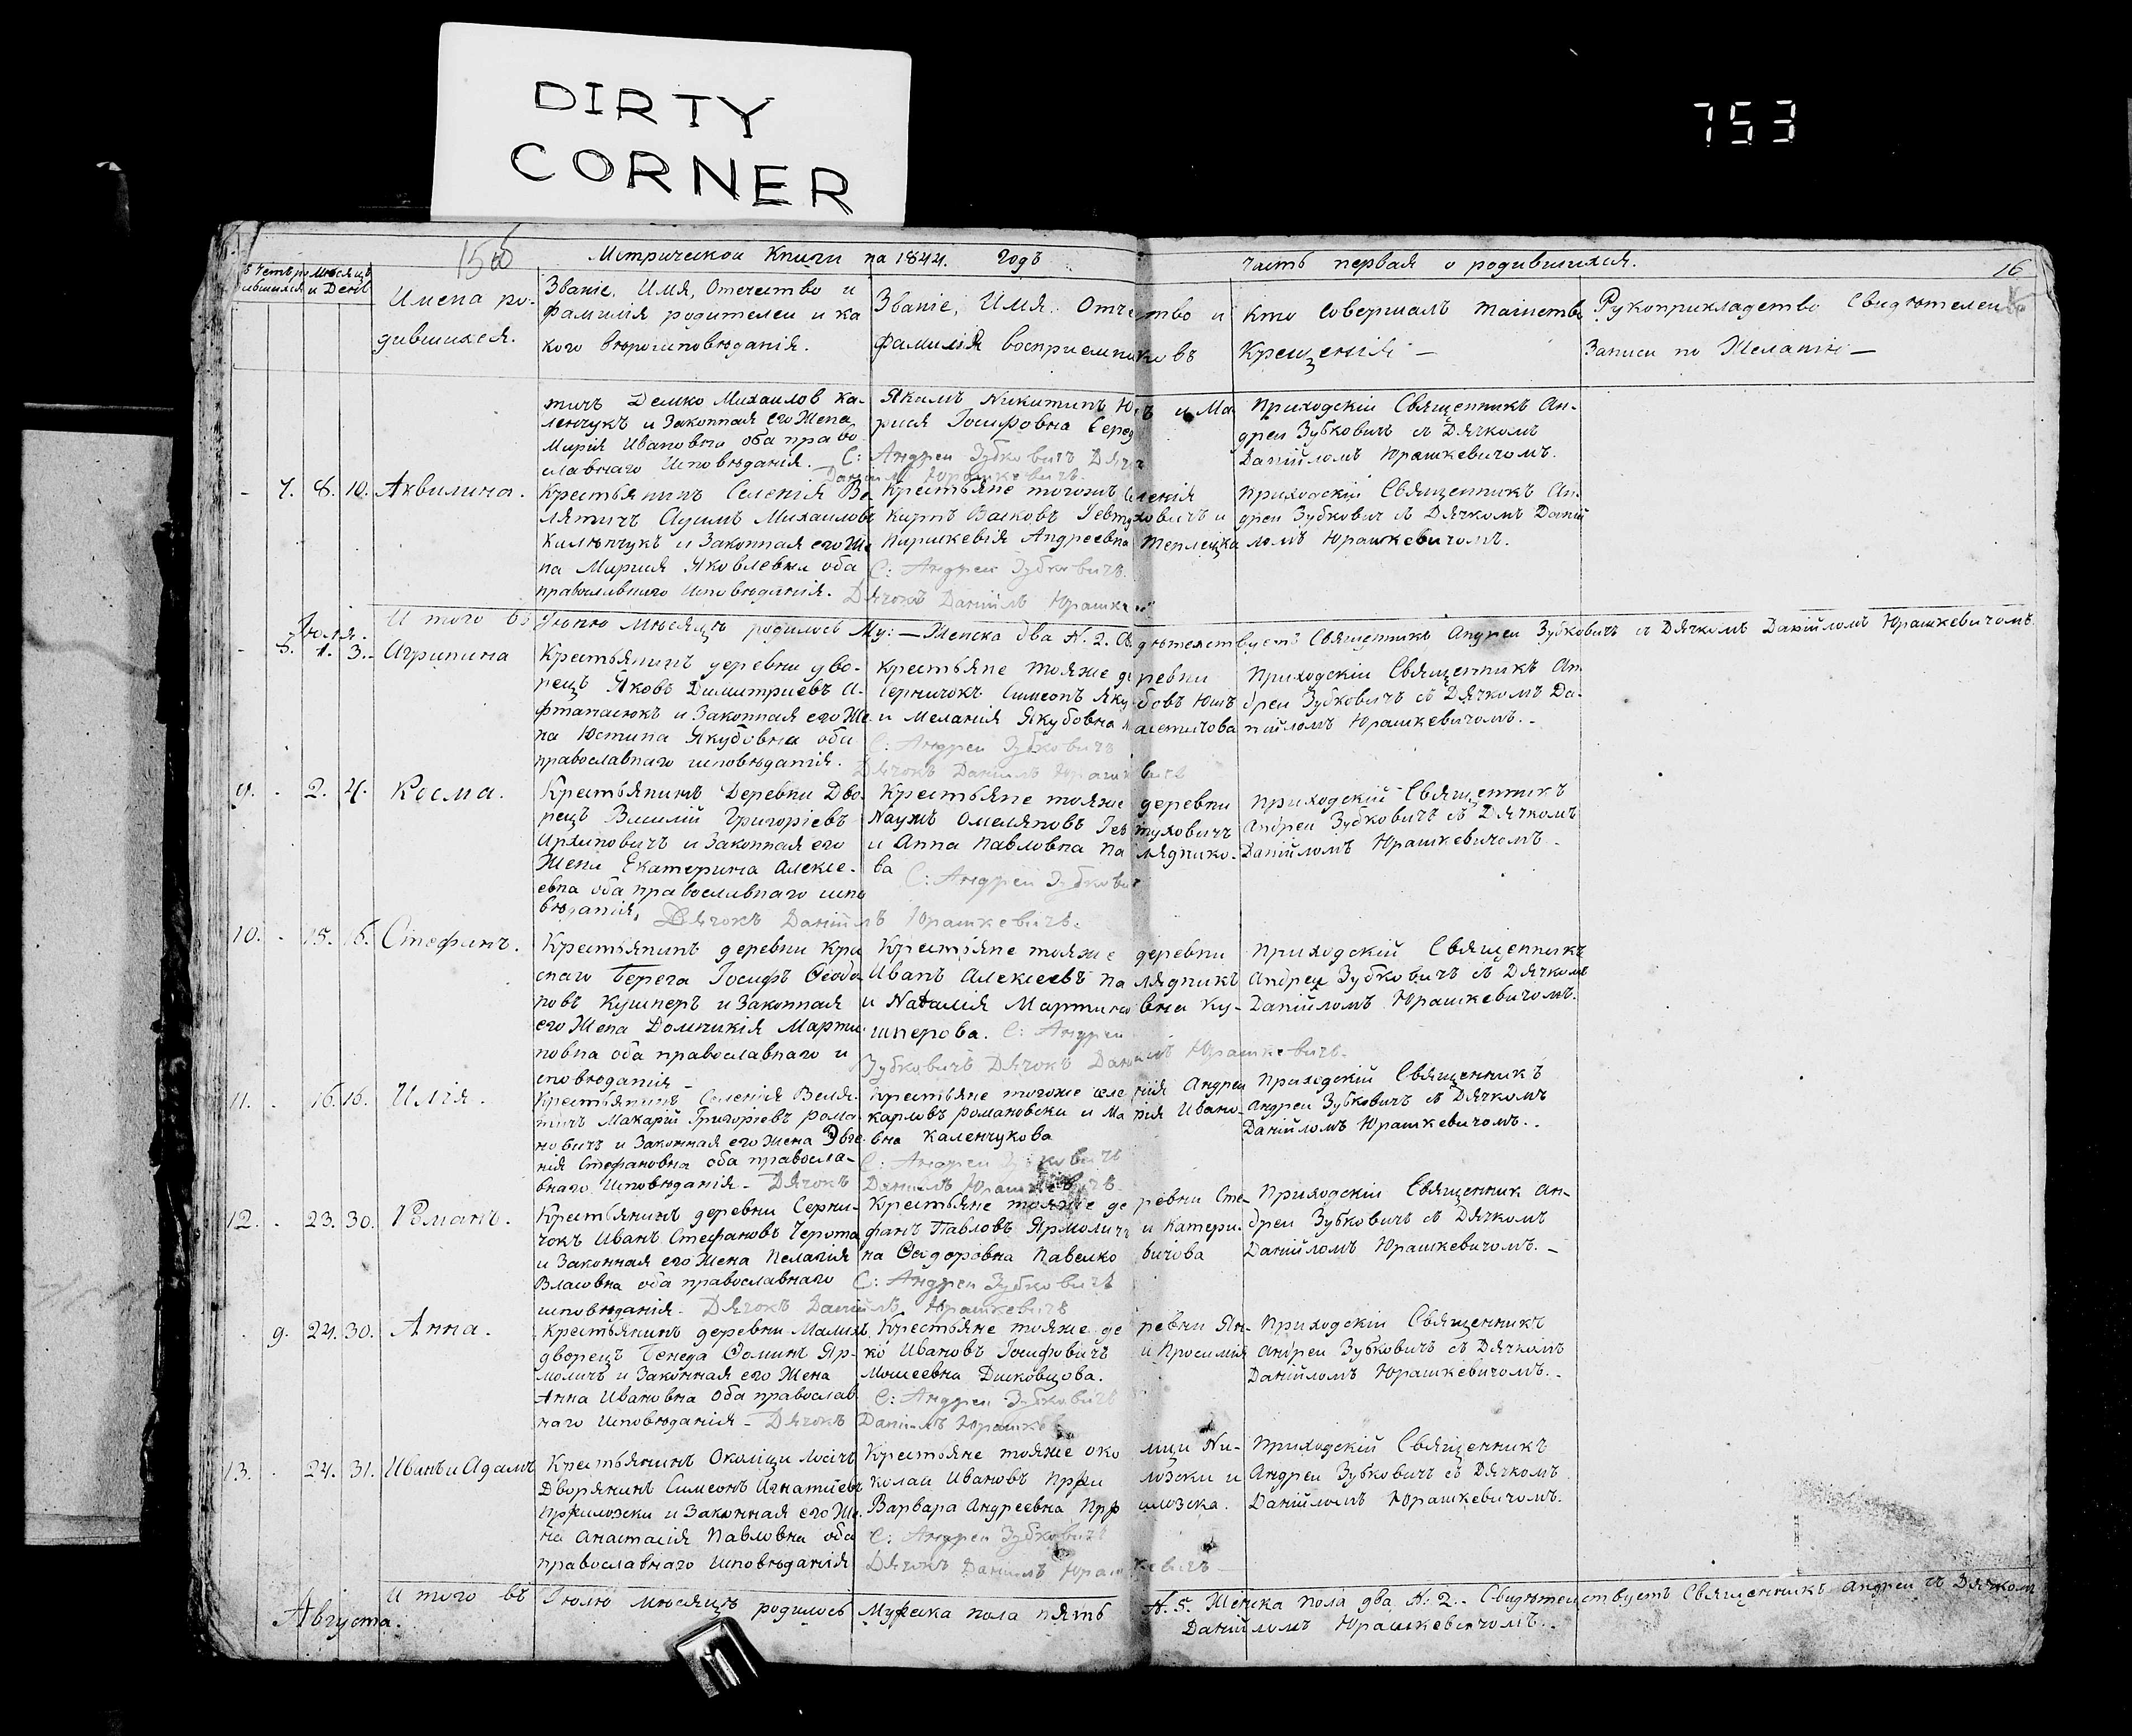 DIRTY
CORNER
753
156
Метрической Книги на 1844. Годъ
часть первая о родившихся.
16
мѣсяцъ
и День
Имена ро-
дившихся.
Званіе, Имя, Отечество и
фамилія родителей и ка
кого вѣроисповѣданія.
Званіе, Имя, Отчество и
фамилія воспріемниковъ
Кто совершалъ таинство
Крещенія —
Рукоприкладство Свидѣтелей
Записи по Желанію —
тичь Демко Михаиловъ Ка-
ленчукъ и Законная его Жена
Марія Ивановна оба право
славнаго Исповѣданія.
Якимъ Никитинъ и Ма
рия Іосифовна
С: Андрей Зубковичъ Дячокъ
Даніилъ Юрашкевичъ.
Приходскій Священникъ Ан-
дрей Зубковичъ съ Дячкомъ
Даніиломъ Юрашкевичомъ.
- 7. 8. 10. Аквилина.
Крестьянинъ Селенія Ве
лятичъ Михаиловъ
и Законная его Же
на Мария Яковлевна оба
православнаго Исповѣданія.
Крестьяне тогожъ Селенія
Андреевна
С: Андрей Зубковичъ.
Дячокъ Даніилъ
Приходскій Священникъ Ан
дрей Зубкович съ Дячкомъ Даній
ломъ Юрашкевичомъ.
И того въ Іюню мѣсяцѣ родилось Му: — Женска два N. 2. Свидѣтельствуетъ Священникъ Андрей Зубковичъ съ Дячкомъ Даніиломъ Юрашкевичомъ.
Іюля.
- 8. 1. 3. Агрипина
Крестьянинъ деревни дво-
рецъ Яковъ Димитриевъ А-
фтанасюкъ и Законная его Же
на Юстина Якубовна оба
православнаго исповѣданія.
крестьяне тояже деревни
Симеонъ Якубовъ
и Меланія Якубовна
С: Андрей Зубковичъ
Дячокъ Даніилъ
Приходскій Священникъ Ан
дрей Зубковичъ съ Дячкомъ Да-
ніиломъ Юрашкевичомъ. -
9. . 2. 4. Косма.
Крестьянинъ Деревни Дво
рецъ Василій Григоріевъ
Архиповичъ и Законная его
Жена Екатерина Алексе-
евна оба православнаго испо
вѣданія.
Крестьяне тояже деревни
Наумъ Омеляновъ Гевтуховичъ
и Анна Павловна Палядпико-
ва
С: Андрей Зубкович
Дячокъ Даніилъ Юрашкевичъ.
приходскій Священникъ
Андрей Зубковичъ съ Дячкомъ
Даніиломъ Юрашкевичомъ.
10. . 15. 16. Стефанъ.
Крестьянинъ деревни Кра
снаго Берега Іосифъ Феодо
ровъ Кушнеръ и Законная
его Жена Домникія Марти
новна оба православнаго и
сповѣданія -
Крестьяне тояже деревни
Иванъ Алексеевъ Палядникъ
и Наталія Мартиновна Ку-
шнерова. С: Андрей
Зубковичъ Дячокъ Даніилъ Юрашкевичъ.
приходскій Священникъ
Андрей Зубковичъ съ Дячкомъ
Даніиломъ Юрашкевичомъ.
11. . 16. 16. Илія.
Крестьянинъ Селенія Веля-
тичъ Макарій Григоріевъ рома-
новичъ и Законная его Жена Эвге-
нія Стефановна оба правосла-
внаго исповѣданія -
Крестьяне тогоже селенія Андрей
карловъ романовски и Марія Ивано-
вна Каленчукова
С: Андрей Зубковичъ
Дячокъ Даніилъ Юрашкевичъ.
Приходскій Священникъ
Андрей Зубковичъ съ Дячкомъ
Даніиломъ Юрашкевичомъ..
12. . 23. 30. Романъ.
Крестьянинъ деревни Серни-
чокъ Иванъ Стефановъ Черота
и Законная его Жена Пелагія
Власовна оба православнаго
исповѣданія -
Крестьяне тояже деревни Сте-
фанъ Павловъ Ярмоличъ и Катери-
на Феодоровна Павелковичова
С: Андрей Зубковичъ
Дячокъ Даніилъ Юрашкевичъ
Приходскій Священник Ан-
дрей Зубковичъ съ Дячкомъ
Даніиломъ Юрашкевичомъ. -
. 9. 24. 30. Анна.
Крестьянинъ деревни Малихъ
дворецъ Бенеда Фоминъ Яр-
моличъ и Законная его Жена
Анна Ивановна Оба православ
наго Исповѣданія -
Крестьяне тояже деревни Ян-
ко Ивановъ Іосифовичъ и Просимія
Мосеевна Дисковцова.
С: Андрей Зубковичъ
Дячокъ Даніилъ
Приходскій Священникъ
Андрей Зубковичъ съ Дячкомъ
Даніиломъ Юрашкевичомъ..
13. . 24. 31. Иванъ и Адамъ
Крестьянинъ Околіци
Дворянинъ Симеонъ Игнатіевъ
и Законная его Же-
на Анастасія Павловна оба
православнаго Исповѣданія
Крестьяне тояже околици Ни-
колай Ивановъ и
Варвара Андреевна
С: Андрей Зубковичъ
Дячокъ Даніилъ Юрашкевичъ
Приходскій Священникъ
Андрей Зубковичъ съ Дячкомъ
Даніиломъ Юрашкевичомъ.
И того въ Іюлю мѣсяцѣ родилось Мужска пола пять N. 5. Женска пола два N. 2.. Свидѣтельствуетъ Священникъ Андрей съ Дячком
Даніиломъ Юрашкевичомъ..
Августа.